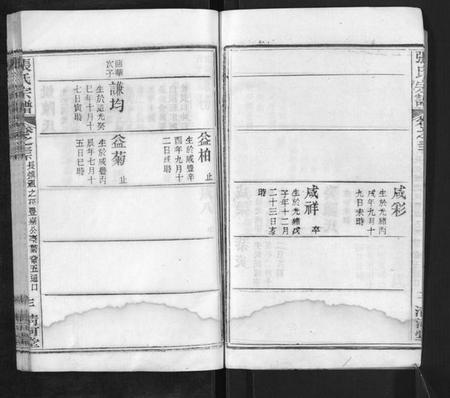 張氏宗譜
卷之三
清河堂
咸彩
生於光緒丙
戌年九月十
九日未時
咸祥 卒
生於光緒戊
子年十二月
二十三日亥
時
益柏 止
生於咸豐辛
酉年九月十
二日戌時
次子
謙均
生於道光癸
巳年十月十
七日寅時
益菊 止
生於咸豐丙
辰年七月十
五日巳時
張氏宗譜
三
清河堂